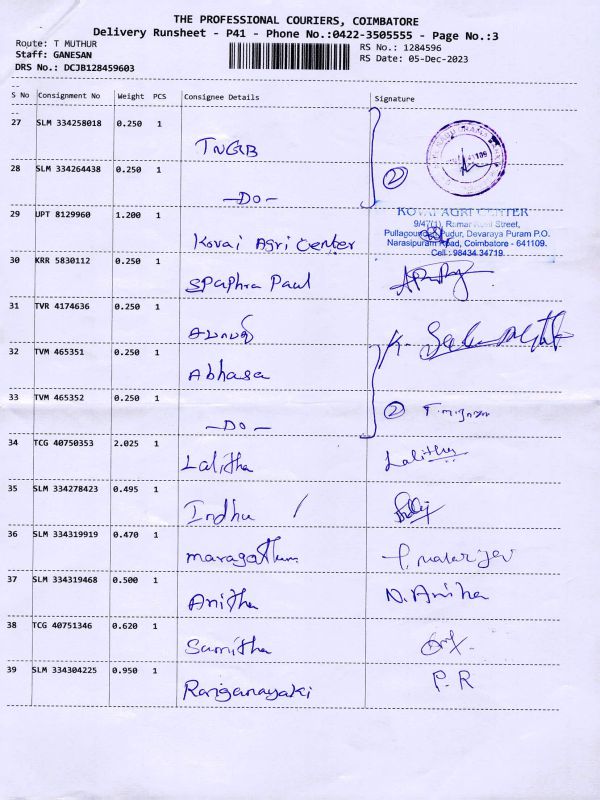 THE PROFESSIONAL COURIERS, COIMBATORE
Delivery Runsheet - P41 - Phone No.:0422-3505555 - Page No.:3
Route: T MUTHUR
Staff: GANESAN
DRS No.: DCJB128459603
RS No.: 1284596
RS Date: 05-Dec-2023
S No Consignment No Weight PCS Consignee Details Signature
27 SLM 334258018 0.250 1 TNGB
28 SLM 334264438 0.250 1 —Do— 2
29 UPT 8129960 1.200 1 Kovai Agri Center
KOVAI AGRI CENTER
9/47(1), Street,
Pudur, Devaraya Puram P.O.
Narasipuram Road, Coimbatore - 641109.
Cell : 98434 34719
30 KRR 5830112 0.250 1 Paul
31 TVR 4174636 0.250 1
32 TVM 465351 0.250 1 Abhasa
33 TVM 465352 0.250 1 —Do— 2
34 TCG 40750353 2.025 1 Lalitha Lalitha
35 SLM 334278423 0.495 1 Indhu /
36 SLM 334319919 0.470 1 maragatham
37 SLM 334319468 0.500 1 Anitha N. Anitha
38 TCG 40751346 0.620 1 Sumitha
39 SLM 334304225 0.950 1 Ranganayaki P. R